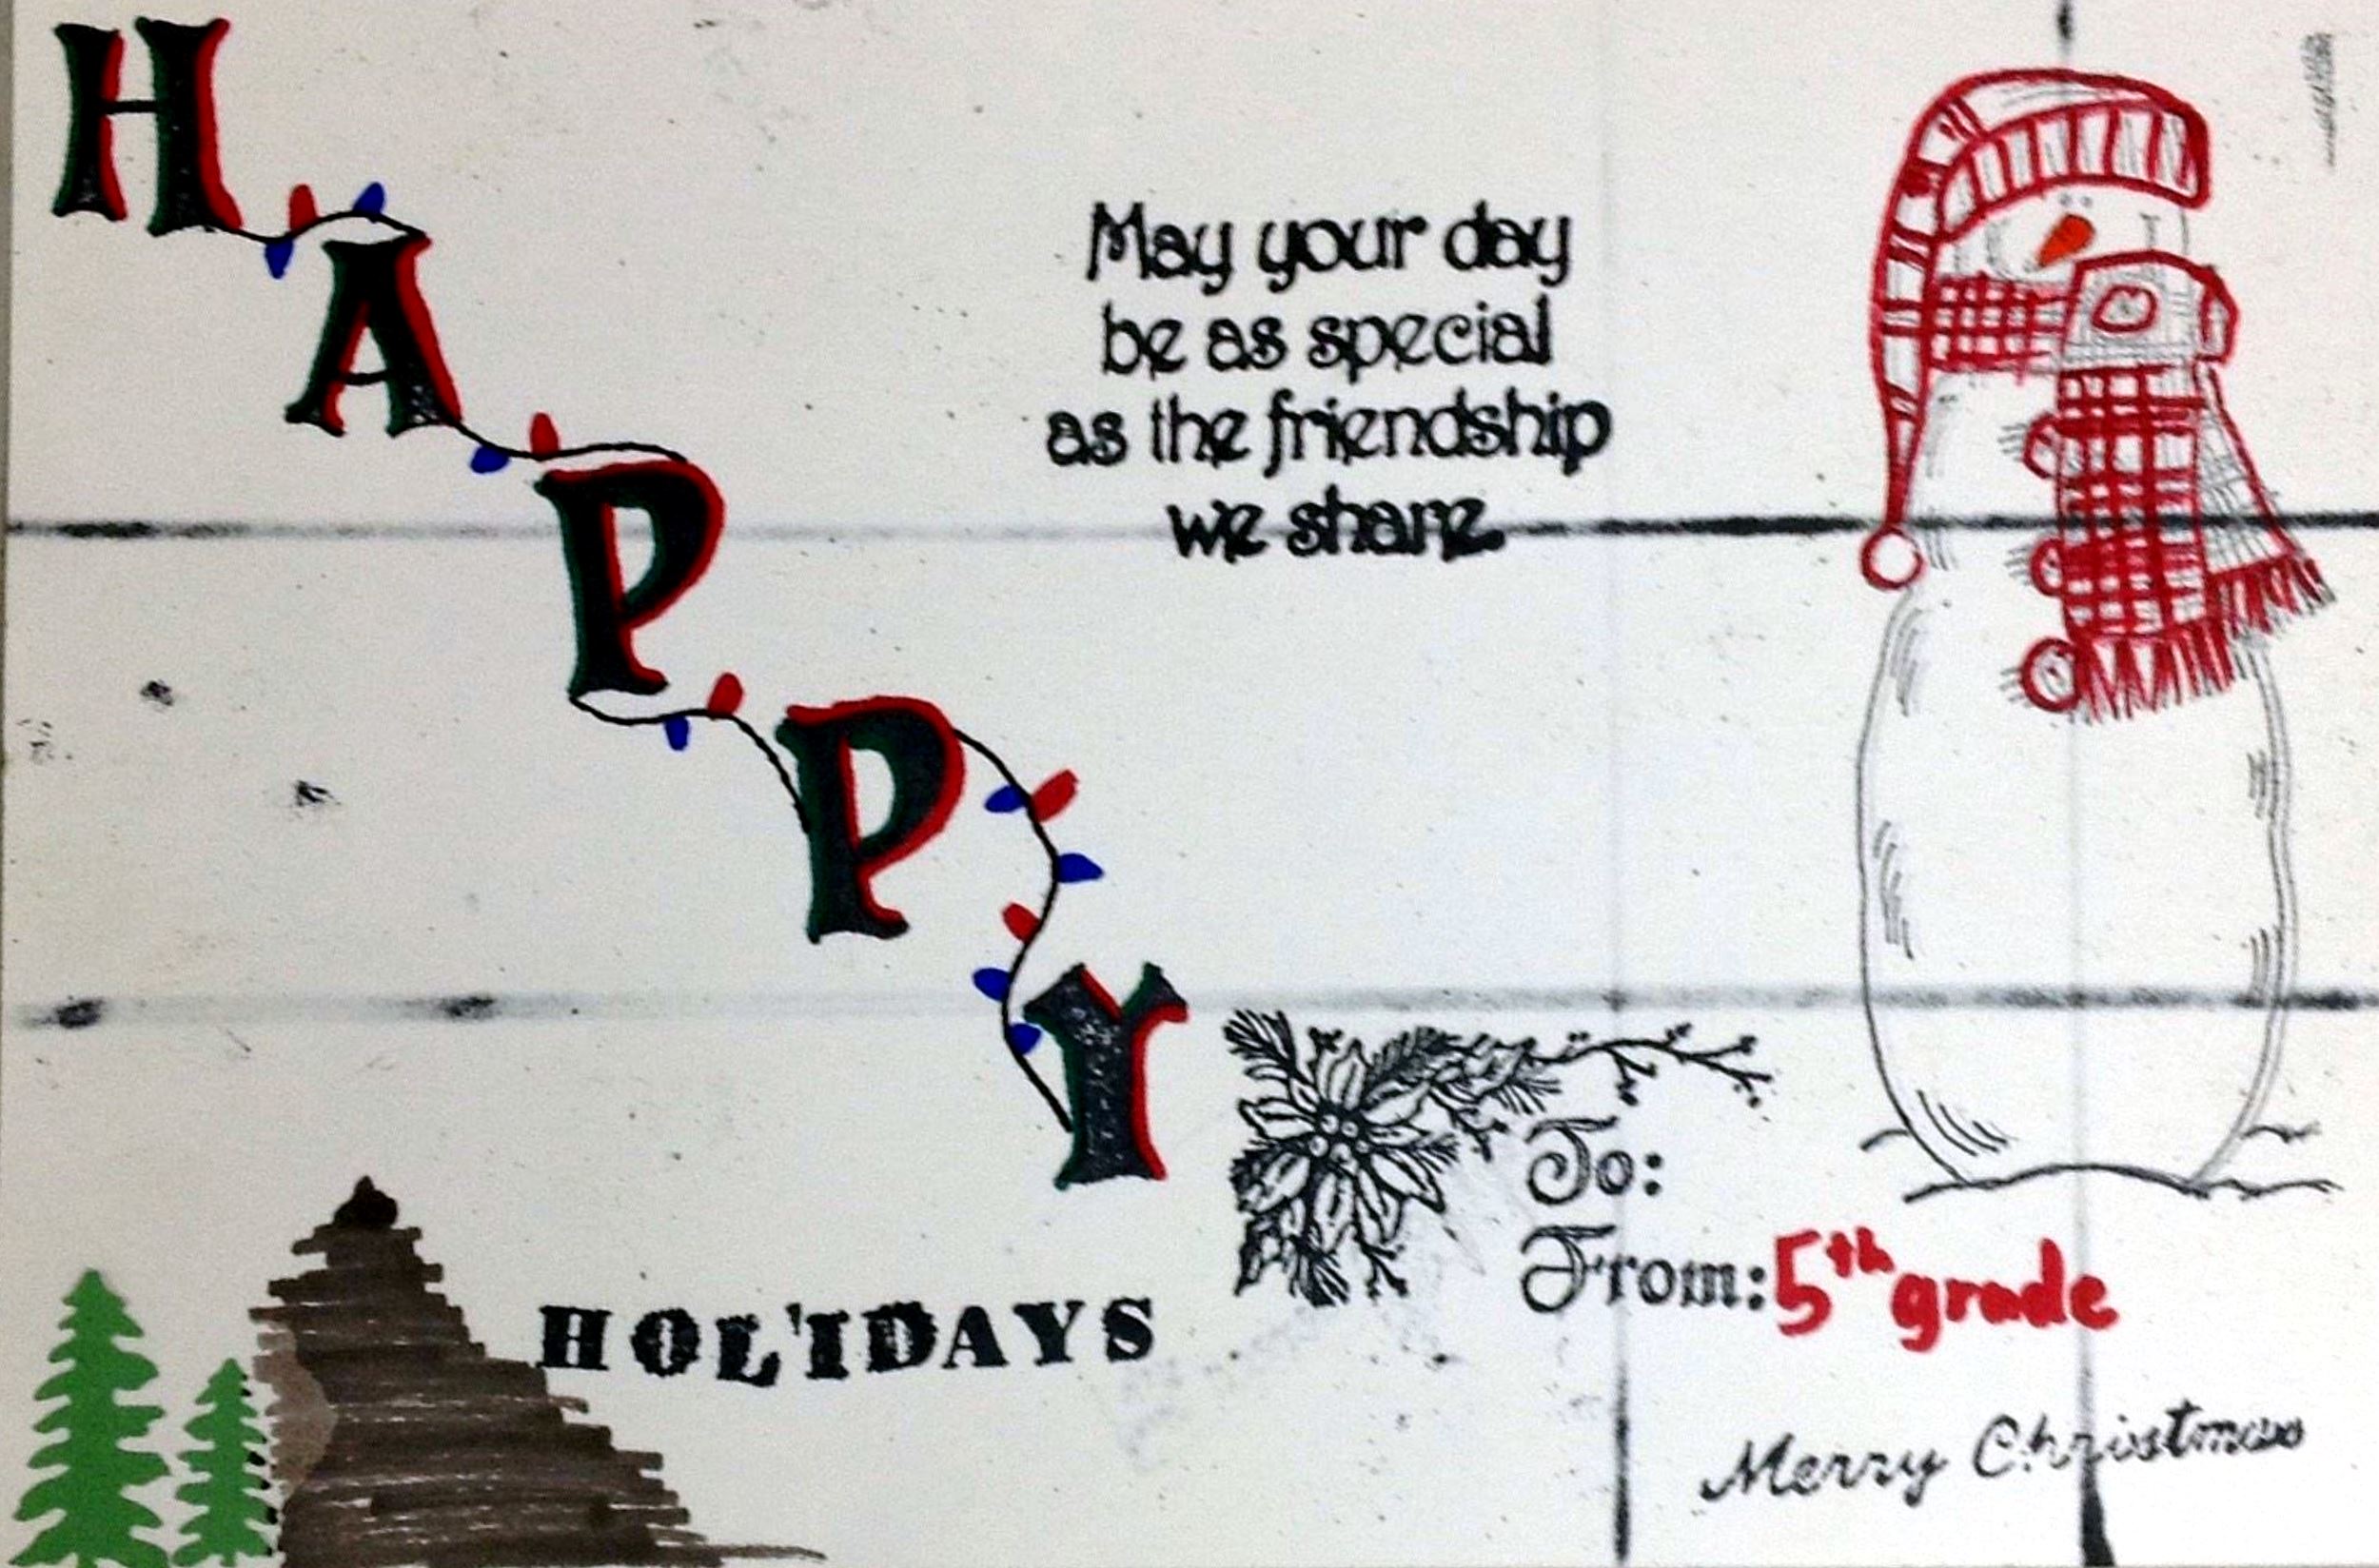 HAPPY
HOLIDAYS
May your day
be as special
as the friendship
we share
To:
From: 5th grade
Merry Christmas